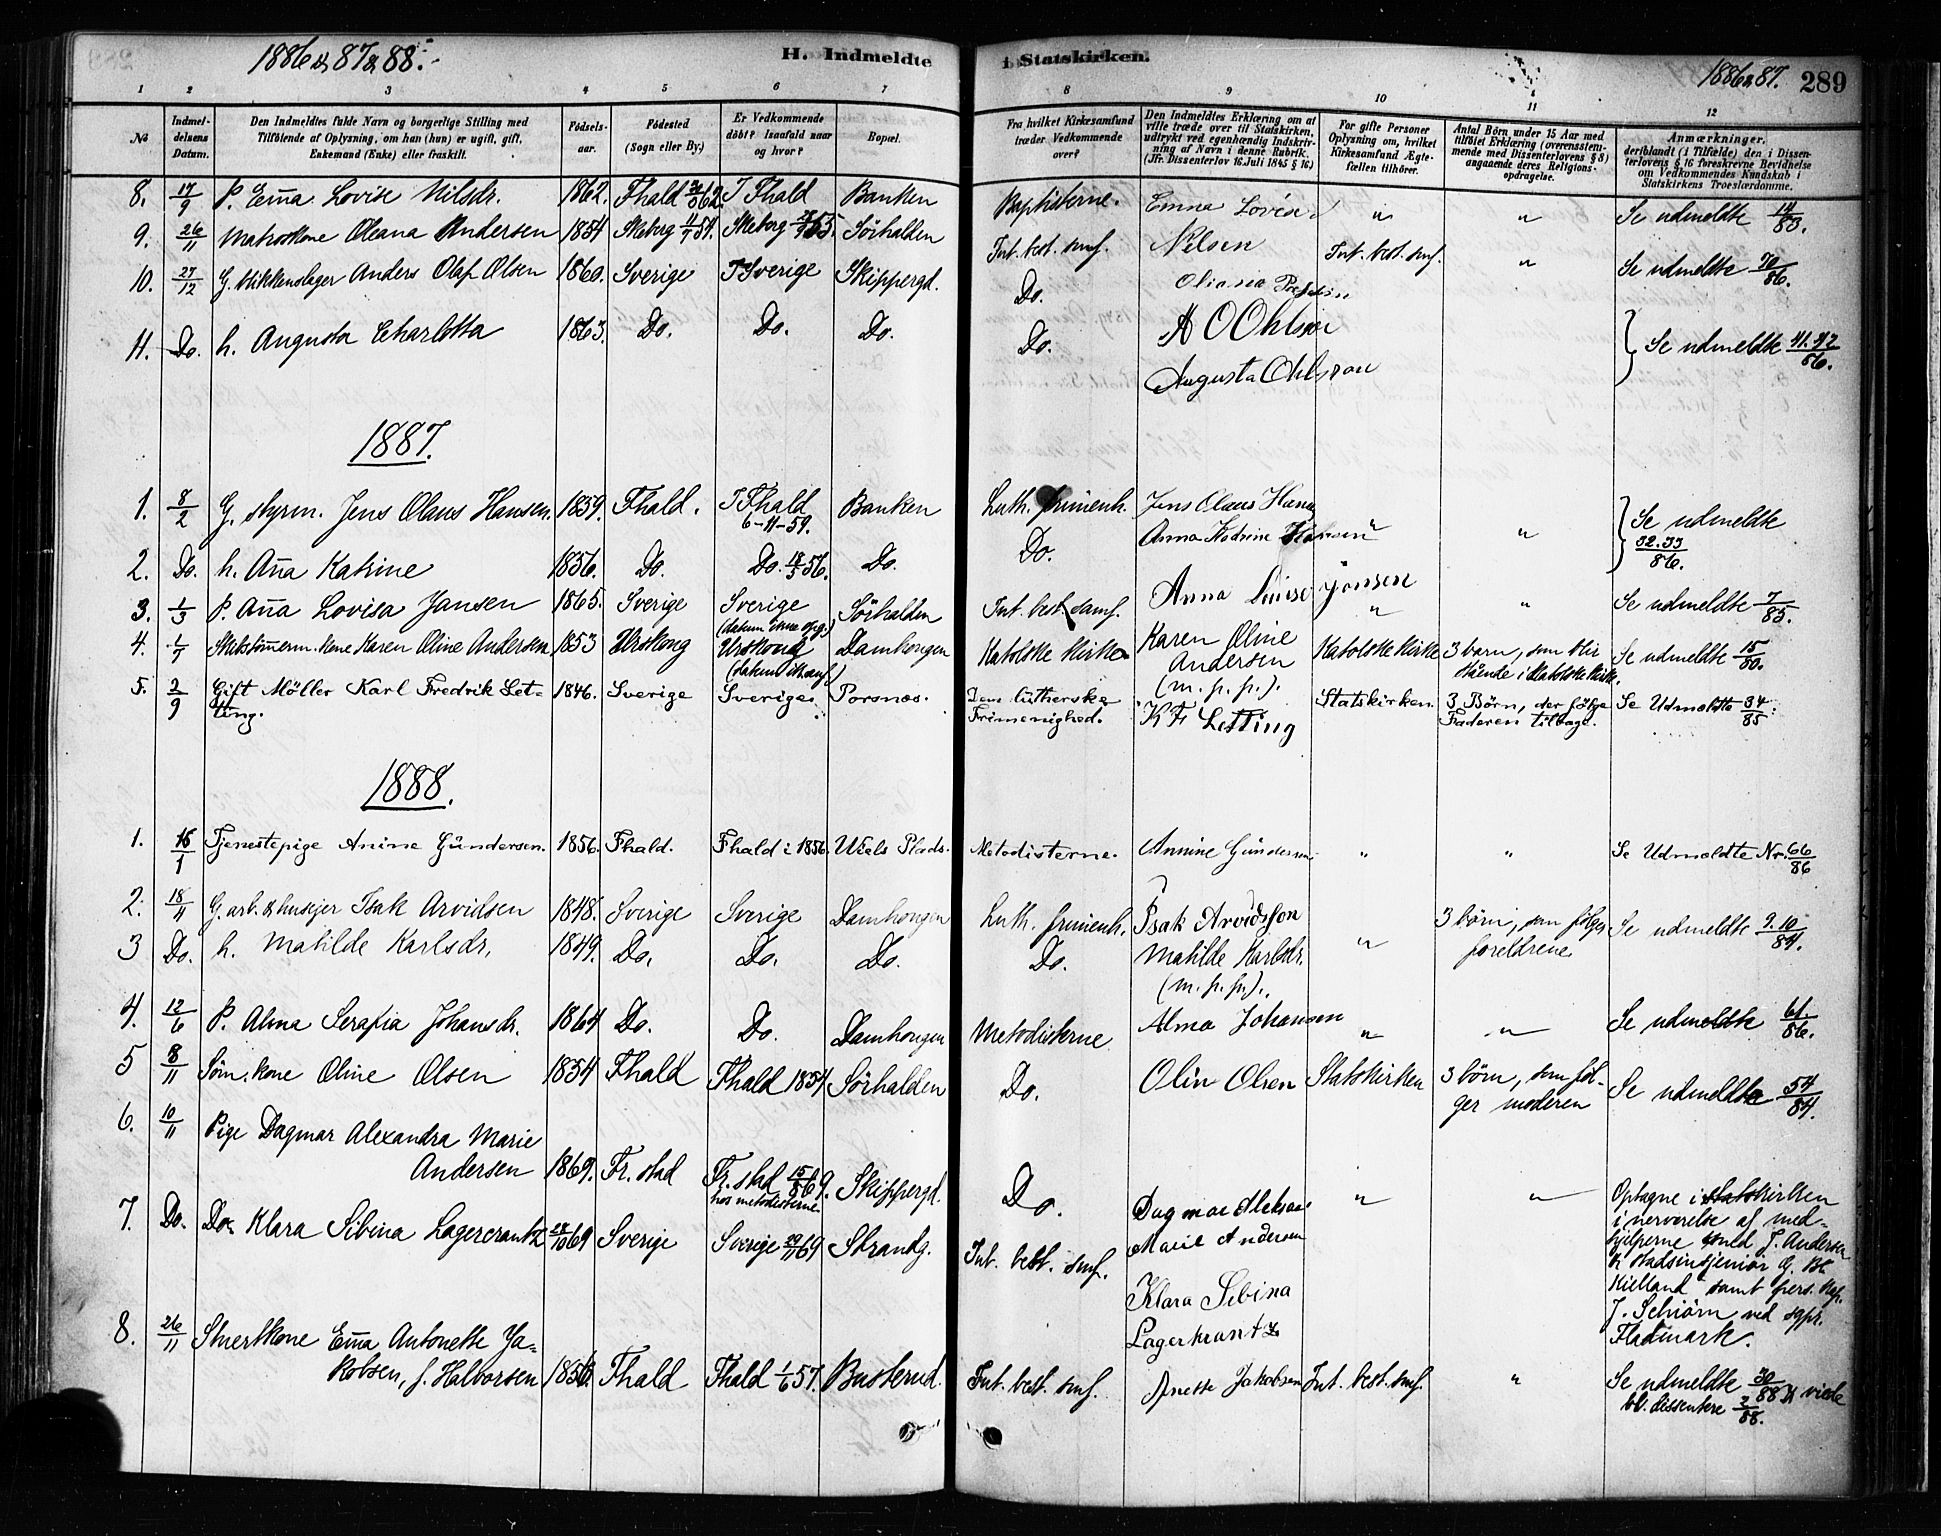 1886 & 87 & 88.
H. Indmeldte
i Statskirken.
1886 & 87. 289
1 2 3 4 5 6 7 8 9 10 11 12
No
Indmeldelsens Datum.
Den Indmeldtes fulde Navn og borgerlige Stilling med
Tilföiende af Oplysning, om han (hun) er ugift, gift,
Enkemand (Enke) eller fraskilt.
Födselsaar.
Födested
(Sogn eller By.)
Er Vedkommende
döbt? Isaafald naar
og hvor?
Bopæl.
Fra hvilket Kirkesamfund
træder Vedkommende
over?
Den Indmeldtes Erklæring om at
ville træde over til Statskirken,
udtrykt ved egenhændig Indskrivning af Navn i denne Rubrik.
(Jfr. Dissenterlov 16 Juli 1845 § 16.)
For gifte Personer
Oplysning om, hvilket
Kirkesamfund Ægtefællen tilhörer.
Antal Börn under 15 Aar med
tilföiet Erklæring (overensstemmende med Dissenterlovens § 8)
angaaende deres Religionsopdragelse.
Anmærkninger,
deriblandt (i Tilfælde) den i Dissenterlovens § 16 foreskrevne Bevidnelse
om Vedkommendes Kundskab i
Statskirkens Troeslærdomme.
8. 17/9 P. Em̄a Lovise Nilsdr. 1862. Fhald 62. I Fhald Banken Baptisterne. Emma Lovise " " Se udmeldte 14/80.
9. 26/11 Matroskone Oleana Andersen 1854 Skeberg 54. Skeberg 55. Sörhalden Int. best. smf. Nilsen Int. best. smf. " Se udmeldte 70/86.
10. 27/12 G. blikkenslager Anders Olaf Olsen 1860. Sverige I Sverige Skippergd. Do. Oliana
11. Do. h. Augusta Charlotta 1863. Do. Do. Do. Do. A O Ohlson Se udmeldte 41.42/86.
Augusta Ohlsson
1887.
1. 8/2 G. styrm. Jens Olaus Hansen. 1859. Fhald. I Fhald 6-11-59. Banken Luth. frimenh. Jens Olaus Hans Se udmeldte
2. Do. h. An̄a Katrine 1856. Do. Do. 18/5 56. Do. Do. Anna Katrine Hansen " " 32.33/86.
3. 1/3 P. An̄a Lovisa Jansen 1865. Sverige Sverige (datum ikke opg.) Sörhalden Int. best. samf. Anna Luise Jonsen " " Se udmeldte 7/85.
4. 1/7 Skibstöm̄erm. kone Karen Oline Andersen. 1853 Urskoug Urskoug Damhougen Katolske Kirke Karen Oline Andersen (m. p. p.). Katolske Kirke 3 barn, som blir stående i Katolske Kirke. Se udmeldte 15/80.
5. 2/9 Gift Möller Karl Fredrik Letting. 1846. Sverige Sverige. Porsnæs. Den lutherske Frimenighed. K F Letting Statskirken. 3 Börn, der fölge Faderen tilbage. Se Udmeldte 34/85.
1888.
1. 16/1 Tjenestepige Anine Gundersen. 1856. Fhald. Fhald i 1856. Wiels Plads. Metodisterne. Annine Gundersen " " Se Udmeldte Nr. 66/86
2. 18/4 G. arb. & husejer Isak Arvidsen 1848. Sverige Sverige Damhougen Luth. frimenh. Isak Arvidsson 3 börn, som fölger foreldrene Se udmeldte 9.10/84.
3 Do. h. Matilde Karlsdr. 1849. Do. Do. Do. Do. Matilde Karlsdr. (m. p. p.). "
4. 12/6 P. Alma Serafia Johansdr. 1864 Do. Do. Damhougen Metodisterne Alma Johansen " " Se udmeldte 61/86.
5 8/11 Söm. kone Oline Olsen 1854 Fhald Fhald 1854. Sörhalden Do. Olin Olsen Statskirken 3 börn, som fölger moderen Se udmeldte 54/84.
6. 10/11 Pige Dagmar Alexandra Marie
Andersen 1869. Fr. stad Fr. stad 15/8 69. hos metodisterne Skippergd. Do. Dagmar Aleksan Marie Andersen " "
7. Do. Do. Klara Sibina Lagercrantz 69 Sverige Sverige 69 Strandg. Int. best. smf. Klara Sibina
Lagerkrantz
Optagne i statskirken
i nerverelse af medhjelperne J. Andersen
& stadsinsjeniör G. Kielland samt pers. kap.
J. Schiörn ved sgpr.
Fladmark.
8. 26/11 Stuertkone Em̄a Antonette Jakobsen, f. Halvorsen 1856. Fhald Fhald 1/6 57. Busterud. Int. best. smf. Anette Jakobsen Int. best. smf. " Se udmeldte 30/88 & viede
bl. dissentere 2/88.